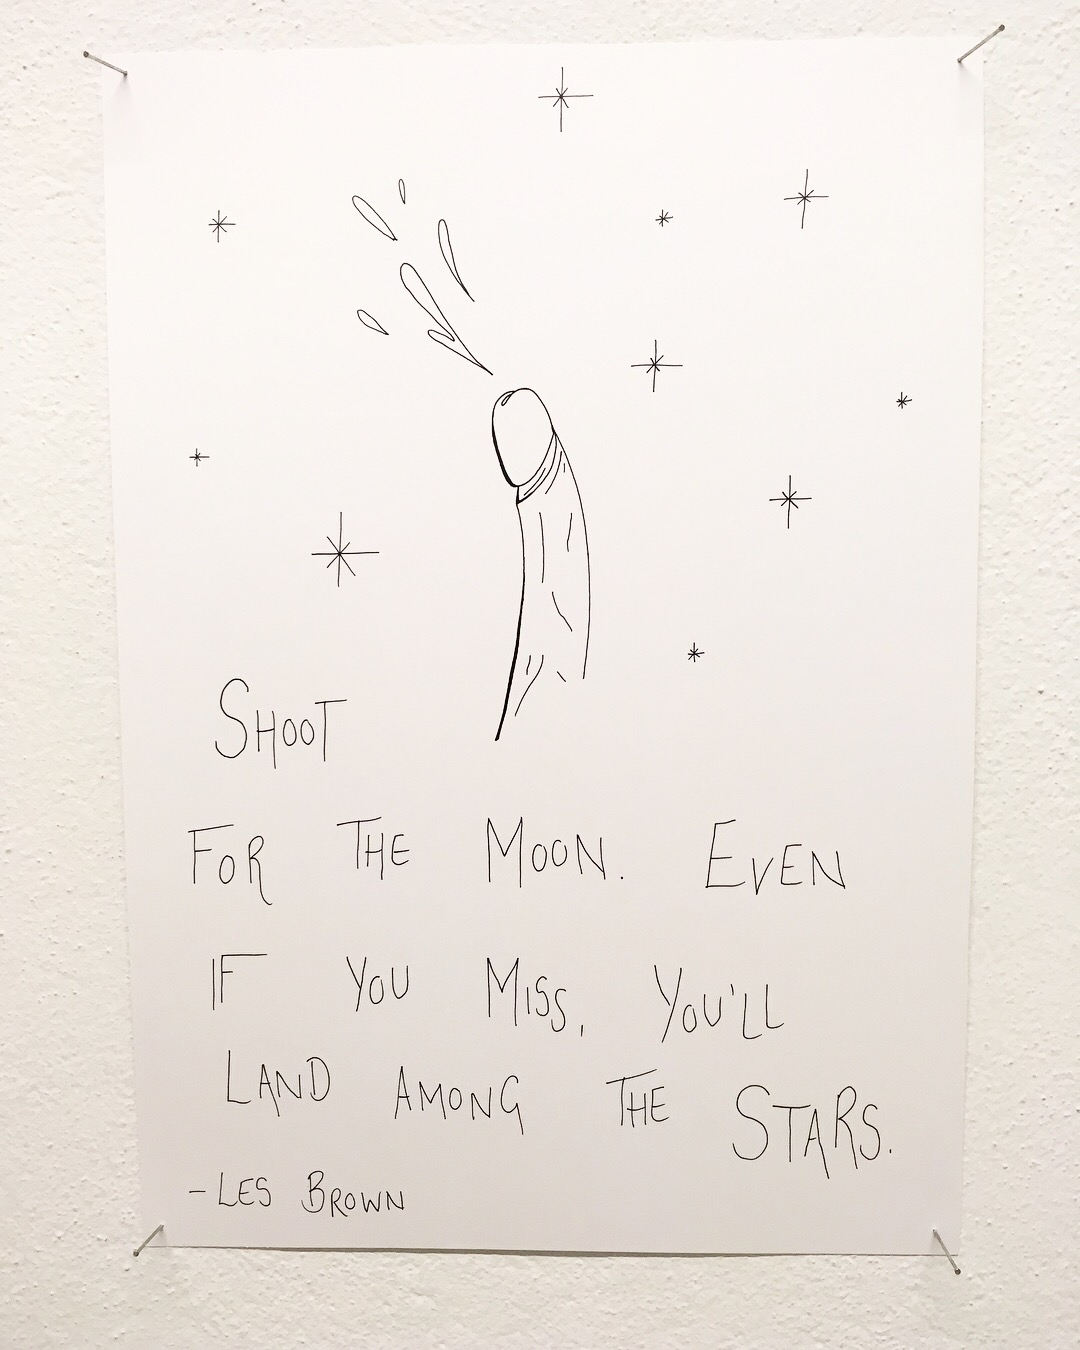 SHOOT
FOR THE MOON. EVEN
IF YOU MISS, YOU'LL
LAND AMONG THE STARS.
- LES BROWN